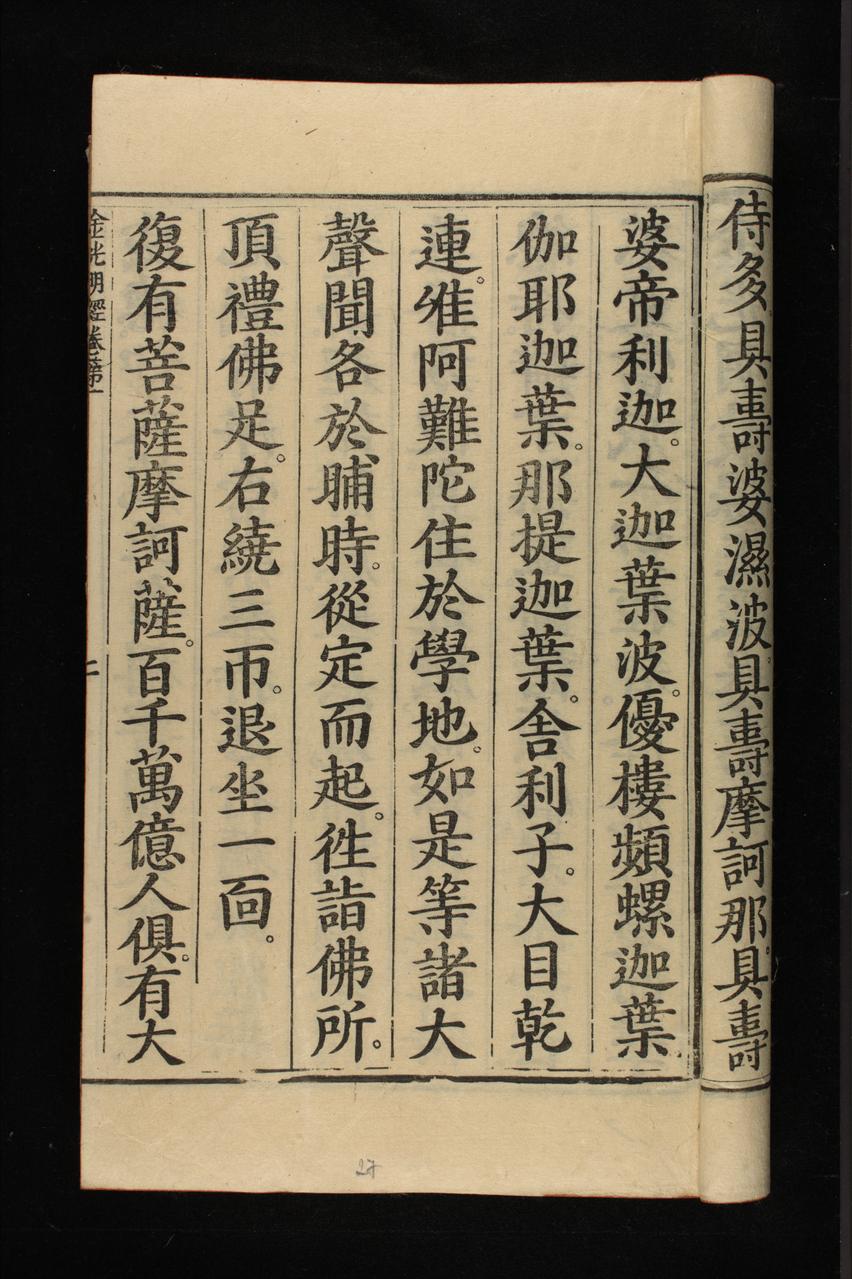 侍多具壽婆濕波具壽摩訶那。具壽
婆帝利迦。大迦葉波。優樓頻螺迦葉
伽耶迦葉。那提迦葉。舍利子。大目乾
連。唯阿難陀住於學地。如是等諸大
聲聞各於晡時。從定而起。徃詣佛所。
頂禮佛足。右繞三帀。退坐一面。
復有菩薩摩訶薩。百千萬億人俱。有大
金光明經卷第一
二
27